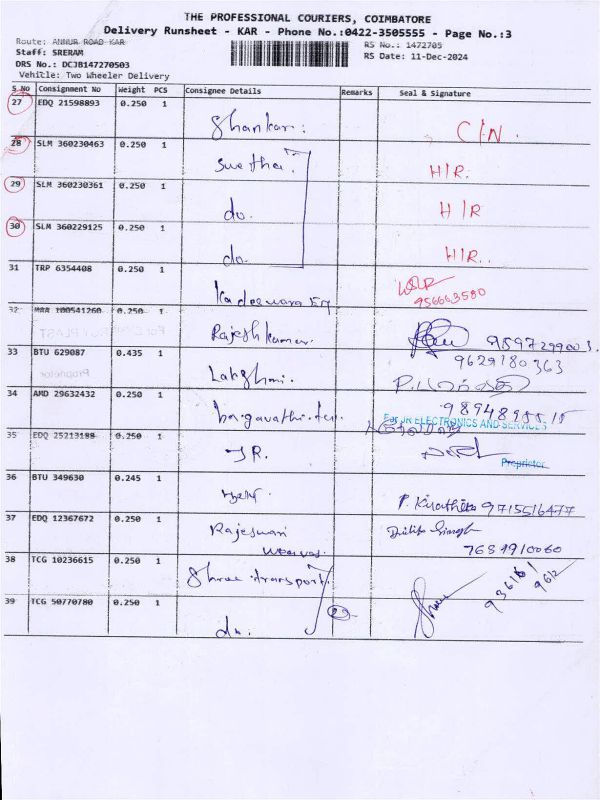 THE PROFESSIONAL COURIERS, COIMBATORE
Delivery Runsheet - KAR - Phone No.:0422-3505555 - Page No.:3
Route: ANNUR ROAD KAR
RS No.: 1472705
Staff: SRERAM
RS Date: 11-Dec-2024
DRS No.: DCJB147270503
Vehitle: Two Wheeler Delivery
S No Consignment No Weight PCS Consignee Details Remarks Seal & Signature
27 EDQ 21598893 0.250 1
Shankar. C/N.
28 SLM 360230463 0.250 1
Swetha. H/R.
29 SLM 360230361 0.250 1
do. H/R
30 SLM 360229125 0.250 1
do. H/R.
31 TRP 6354408 0.250 1
32 MAA 100541260 0.250 1
Rajeshkumar. 9597299003.
33 BTU 629087 0.435 1
9629180363
Lakshmi.
34 AMD 29632432 0.250 1
For JR ELECTRONICS AND SERVICES
35 EDQ 25213188 0.250 1
JR.
Proprietor
36 BTU 349630 0.245 1
9715516477
37 EDQ 12367672 0.250 1
Rajeswari
38 TCG 10236615 0.250 1
Shree transport
39 TCG 50770780 0.250 1
do.